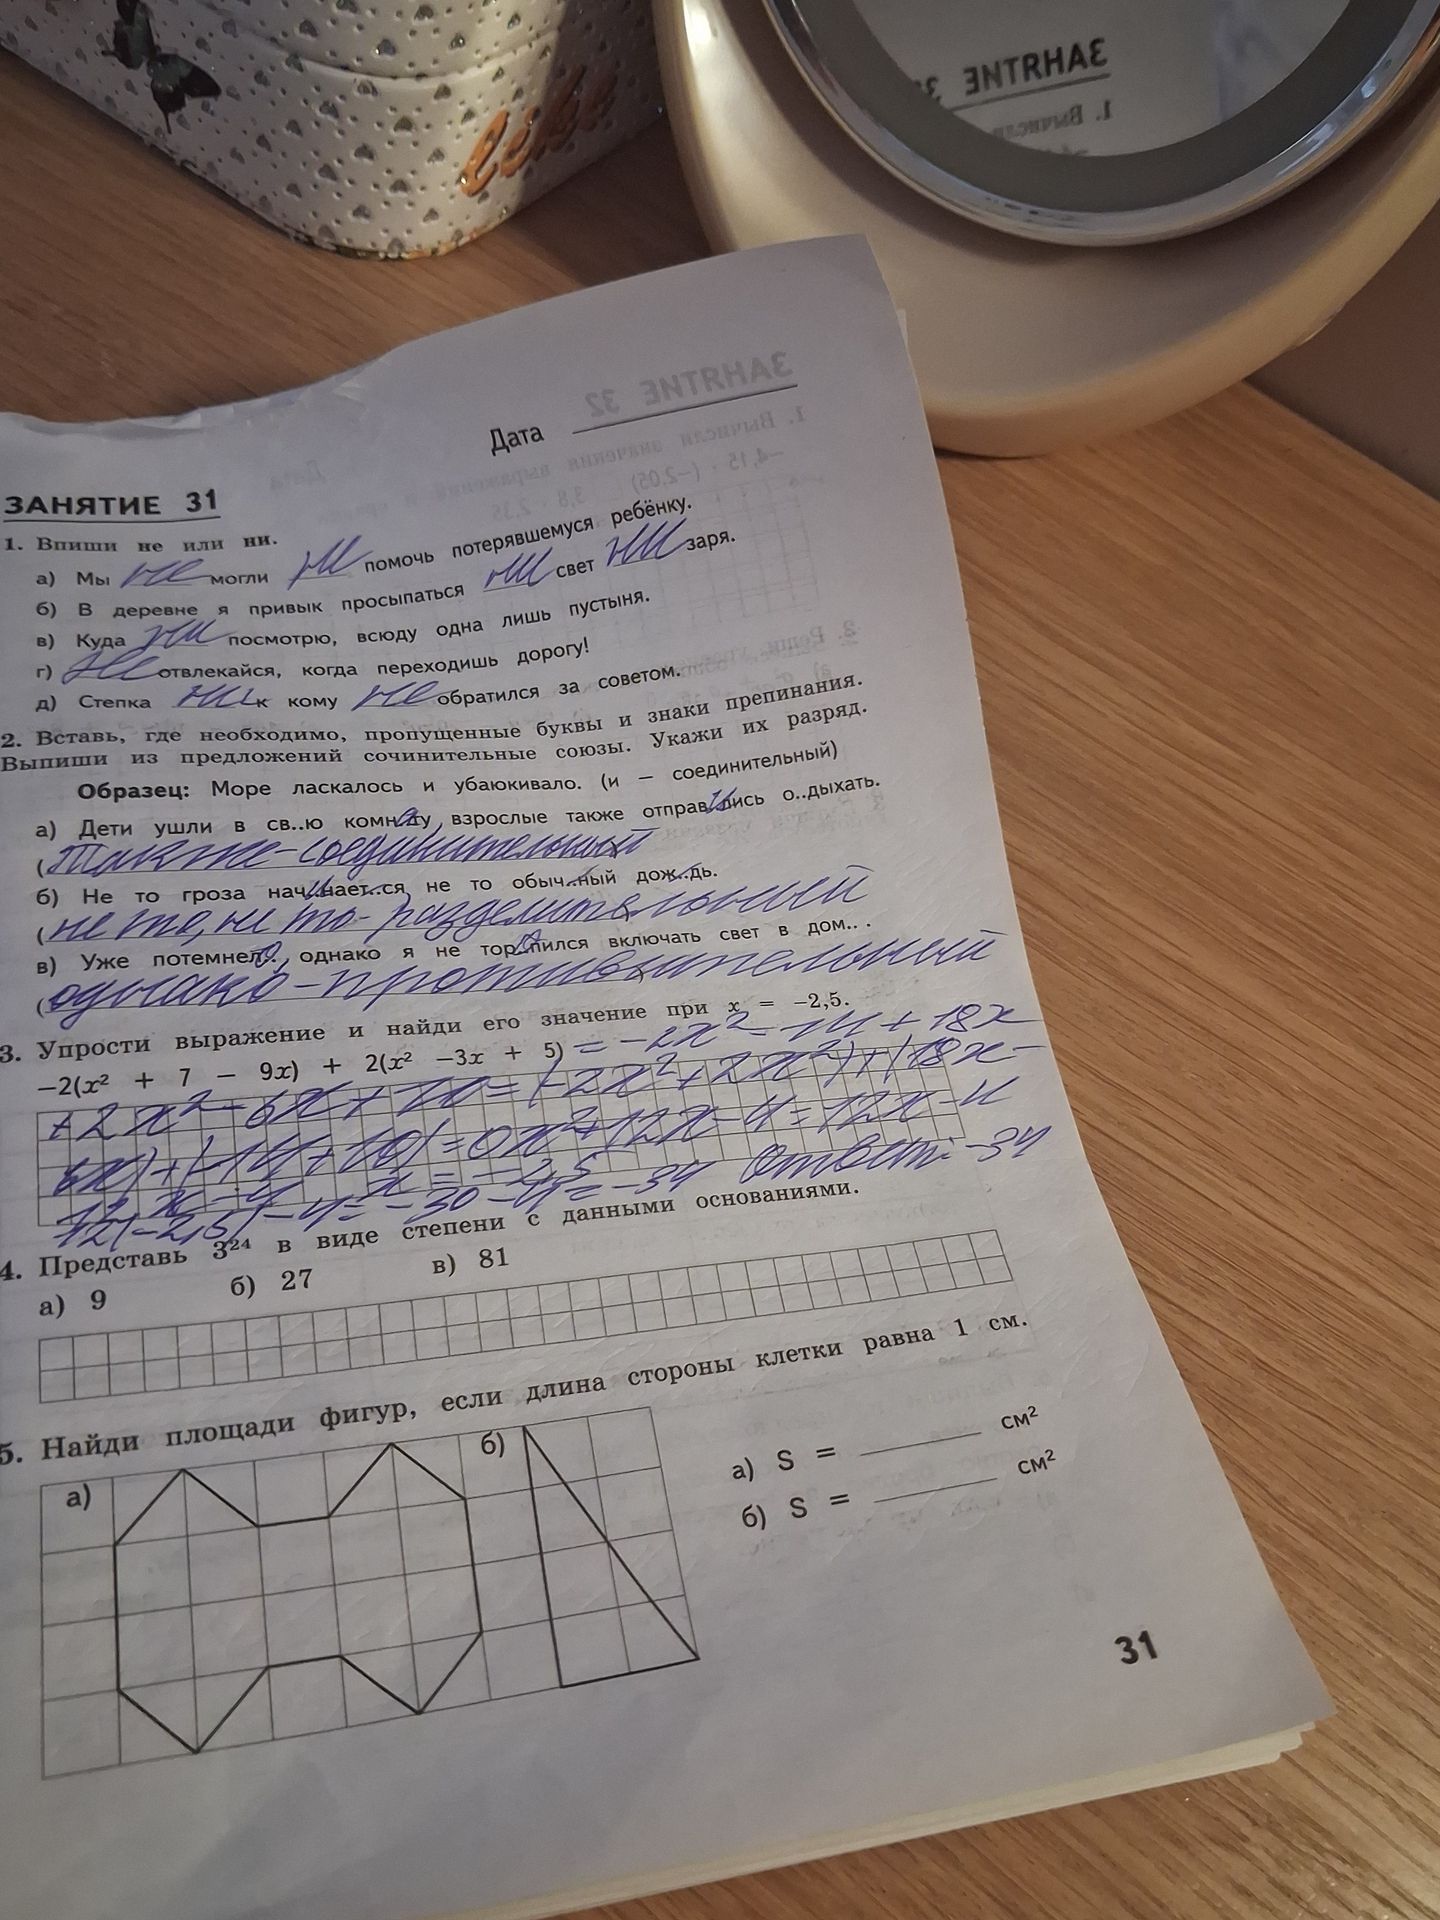 like
ЗАНЯТИЕ 3
1. Вычисли
ЗАНЯТИЕ 32
1. Вычисли значения выражений
Дата
-4,15 · (-2,05) 3,8 · 2,35
Дата
ЗАНЯТИЕ 31
1. Впиши не или ни.
а) Мы не могли ни помочь потерявшемуся ребёнку.
б) В деревне я привык просыпаться ни свет ни заря.
в) Куда ни посмотрю, всюду одна лишь пустыня.
г) Не отвлекайся, когда переходишь дорогу!
д) Степка ни к кому не обратился за советом.
2. Вставь, где необходимо, пропущенные буквы и знаки препинания.
Выпиши из предложений сочинительные союзы. Укажи их разряд.
Образец: Море ласкалось и убаюкивало. (и — соединительный)
а) Дети ушли в св..ю комнату, взрослые также отправились о..дыхать.
(также-соединительный
б) Не то гроза начинает..ся, не то обыч..ный дож..дь.
(не то, не то- разделительный
в) Уже потемнело, однако я не торопился включать свет в дом.. .
(однако-противительный
3. Упрости выражение и найди его значение при x = -2,5.
-2(x² + 7 - 9x) + 2(x² -3x + 5) = -2x² - 14 + 18x
+2x² - 6x + 10 = (-2x² + 2x²) + (18x -
6x) + (-14 + 10) = 0x² + 12x - 4 = 12x - 4
12x - 4 x = -2,5
12(-2,5) - 4 = -30 - 4 = -34 Ответ: -34
4. Представь 3²⁴ в виде степени с данными основаниями.
а) 9 б) 27 в) 81
5. Найди площади фигур, если длина стороны клетки равна 1 см.
а) б)
а) S = см²
б) S = см²
31